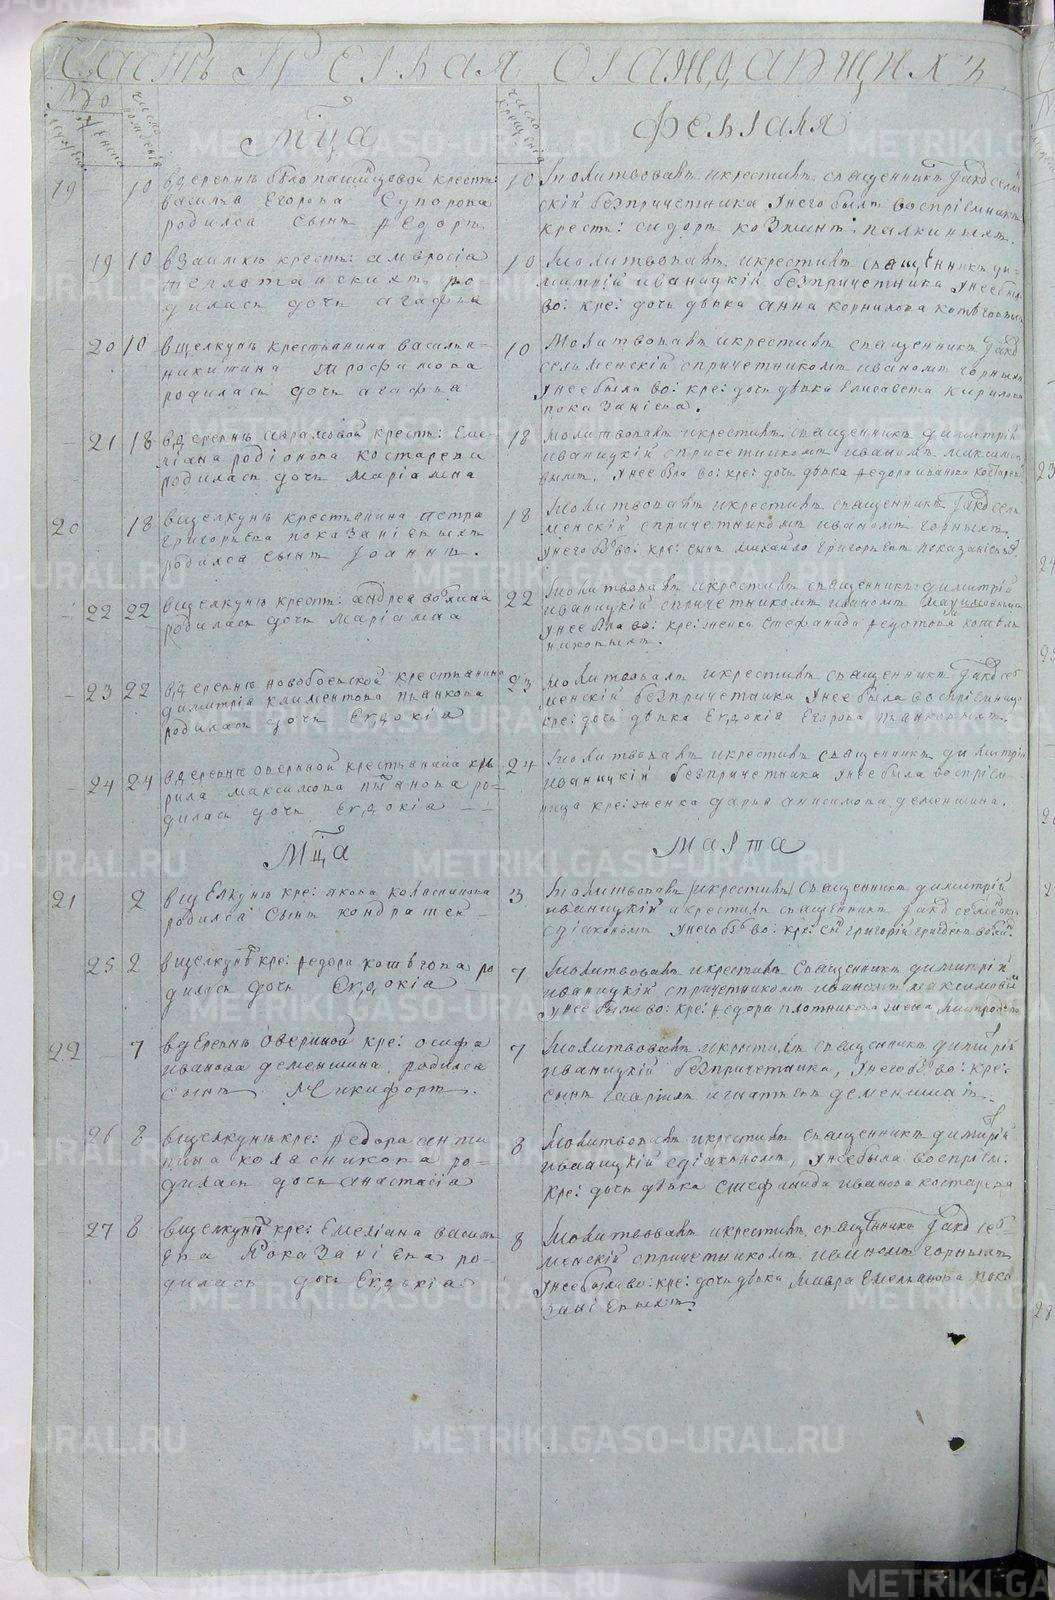 Часть первая
мужеска
женска
число рожденiя
Мца
число крещенiя
Февраля
19
10
в деревнѣ бѣлопашицовой крестъ:
василья Егорова Супорова
родился сынъ Ѳедоръ
10
Молитвовалъ и крестилъ священникъ Iаковъ селме
скiй без причетника У него былъ воспрiемникъ
крестъ: сидоръ козминъ палкиныхъ.
19
10
в Заимкѣ крестъ: амвросiа
ро
дилась дочь агафья
10
Молитвовалъ и крестилъ священникъ ди
митрiй иваницкiй без причетника У нее была
во: кре: дочь дѣвка анна корнилова
20
10
в щелкунѣ крестьянина василья
никитина трофимова
родилась дочь агафья
10
Молитвовалъ и крестилъ священникъ Iаковъ
селменскiй с причетникомъ иваномъ чорныхъ
У нее была во: кре: дочь дѣвка Елисавета кирилова
показанiева.
21
18
в деревнѣ аврамовой крестъ: Еме
лiана родiонова костарева
родилась дочь Марiамна
18
Молитвовалъ и крестилъ священникъ димитрiй
иваницкiй с причетникомъ иваномъ максимо
вымъ. У нее была во: кре: дочь дѣвка Ѳедора иванова костарева
20
18
в щелкунѣ крестьянина петра
григорьева показанiевыхъ
родился сынъ Iоаннъ.
18
Молитвовалъ и крестилъ священникъ Iаковъ сел
менскiй с причетникомъ иваномъ чорныхъ
У него бы во: кре: сынъ михайло григорьевъ показанiевъ
22
22
в щелкунѣ крестъ: андрея вохмина
родилась дочь Марiамна
22
Молитвовалъ и крестилъ священникъ димитрiй
иваницкiй с причетникомъ иваномъ максимовымъ
У нее была во: кре: женка Стефанида Ѳедотова
23
22
в деревнѣ новобоевской крестьянина
димитрiа климентова пьанкова
родилась дочь Евдокiа
23
Молитвовалъ и крестилъ священникъ Iаковъ сел
менскiй без причетника У нее была воспрiемница
кре: дочь дѣвка Евдокiа Егорова пьанковыхъ.
24
24
в деревнѣ овериной крестьянина ки
рила максимова пьанова ро
дилась дочь Евдокiа
24
Молитвовалъ и крестилъ священникъ димитрiй
иваницкiй без причетника У нее была воспрiем
ница кре: женка дарья анисимова деменшина.
Мца
Марта
21
2
в щелкунѣ кре: якова коласникова
родился сынъ кондратей
3
Молитвовалъ и крестилъ священникъ димитрiй
иваницкiй а крестилъ священникъ Iаковъ
с дiакономъ У него бы во: кре: сынъ григорiй
25
2
в щелкунѣ кре: Ѳедора котѣгова ро
дилась дочь Евдокiа
7
Молитвовалъ и крестилъ священникъ димитрiй
иваницкiй с причетникомъ иваномъ максимовым
У нее была во: кре: Ѳедора плотникова жена
22
7
в деревнѣ овериной кре: осифа
иванова деменшина родился
сынъ Никифоръ.
7
Молитвовалъ и крестилъ священникъ димитрiй
иваницкiй без причетника, У него бы во: кре:
сынъ гаврiилъ игнатьевъ деменшинъ.
26
8
в щелкунѣ кре: Ѳедора анти
пина коласникова ро
дилась дочь анастасiа
8
Молитвовалъ и крестилъ священникъ димитрiй
иваницкiй с дiакономъ, У нее была воспрiем.
кре: дочь дѣвка Стефанида иванова костарева
27
8
в щелкунѣ кре: Емелiана василь
ева Показанiева ро
дилась дочь Евдокiа
8
Молитвовалъ и крестилъ священникъ Iаковъ сел
менскiй с причетникомъ иваномъ чорныхъ
У нее была во: кре: дочь дѣвка Мавра Емельанова пока
занiевыхъ.
METRIKI.GASO-URAL.RU